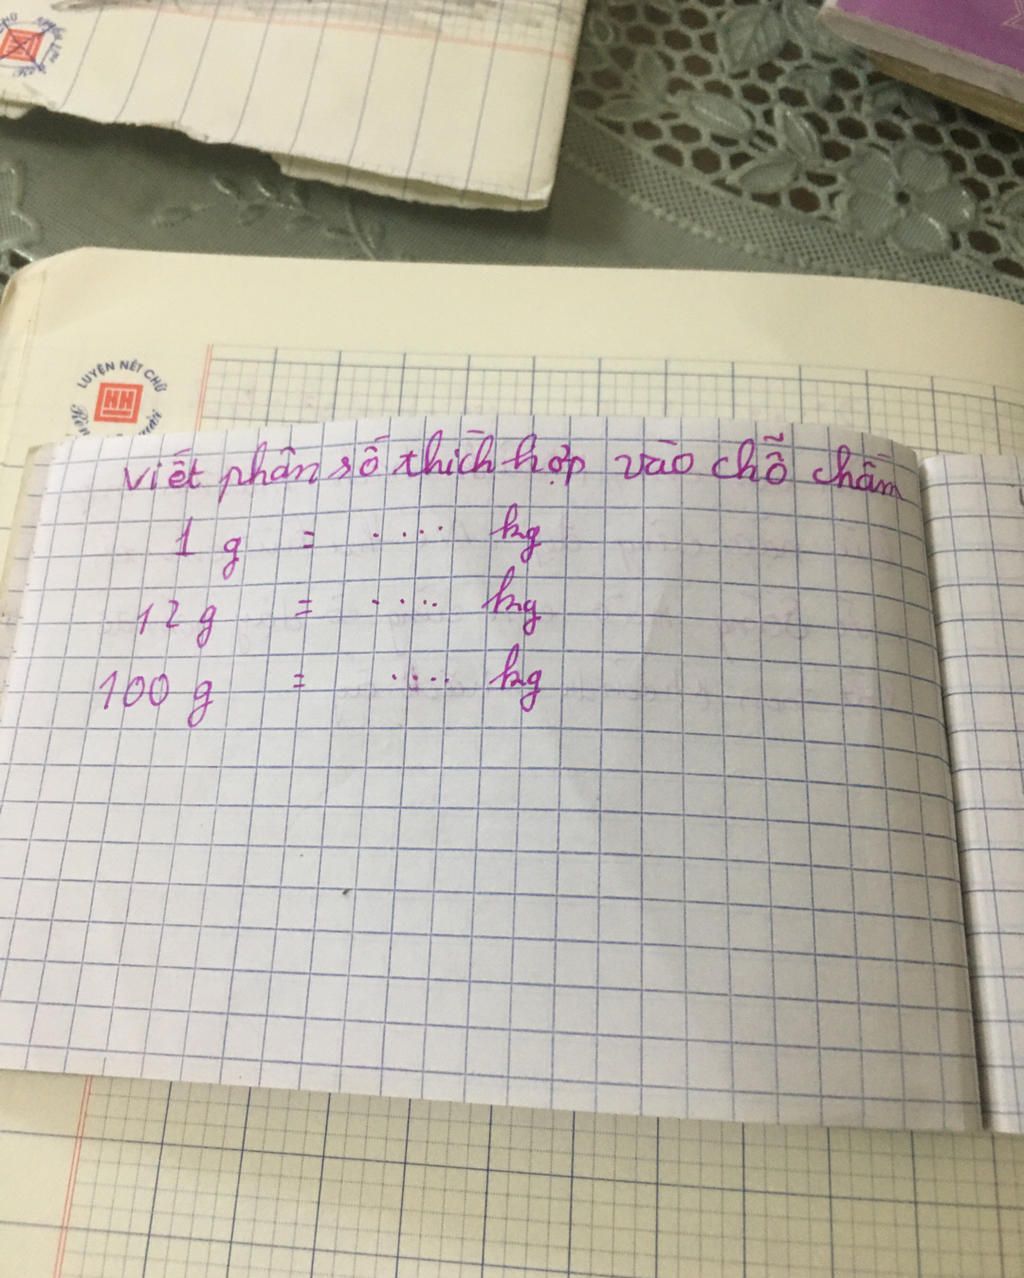 LUYỆN NÉT CHỮ
viết phân số thích hợp vào chỗ chấm
1 g = .... kg
12 g = .... kg
100 g = .... kg